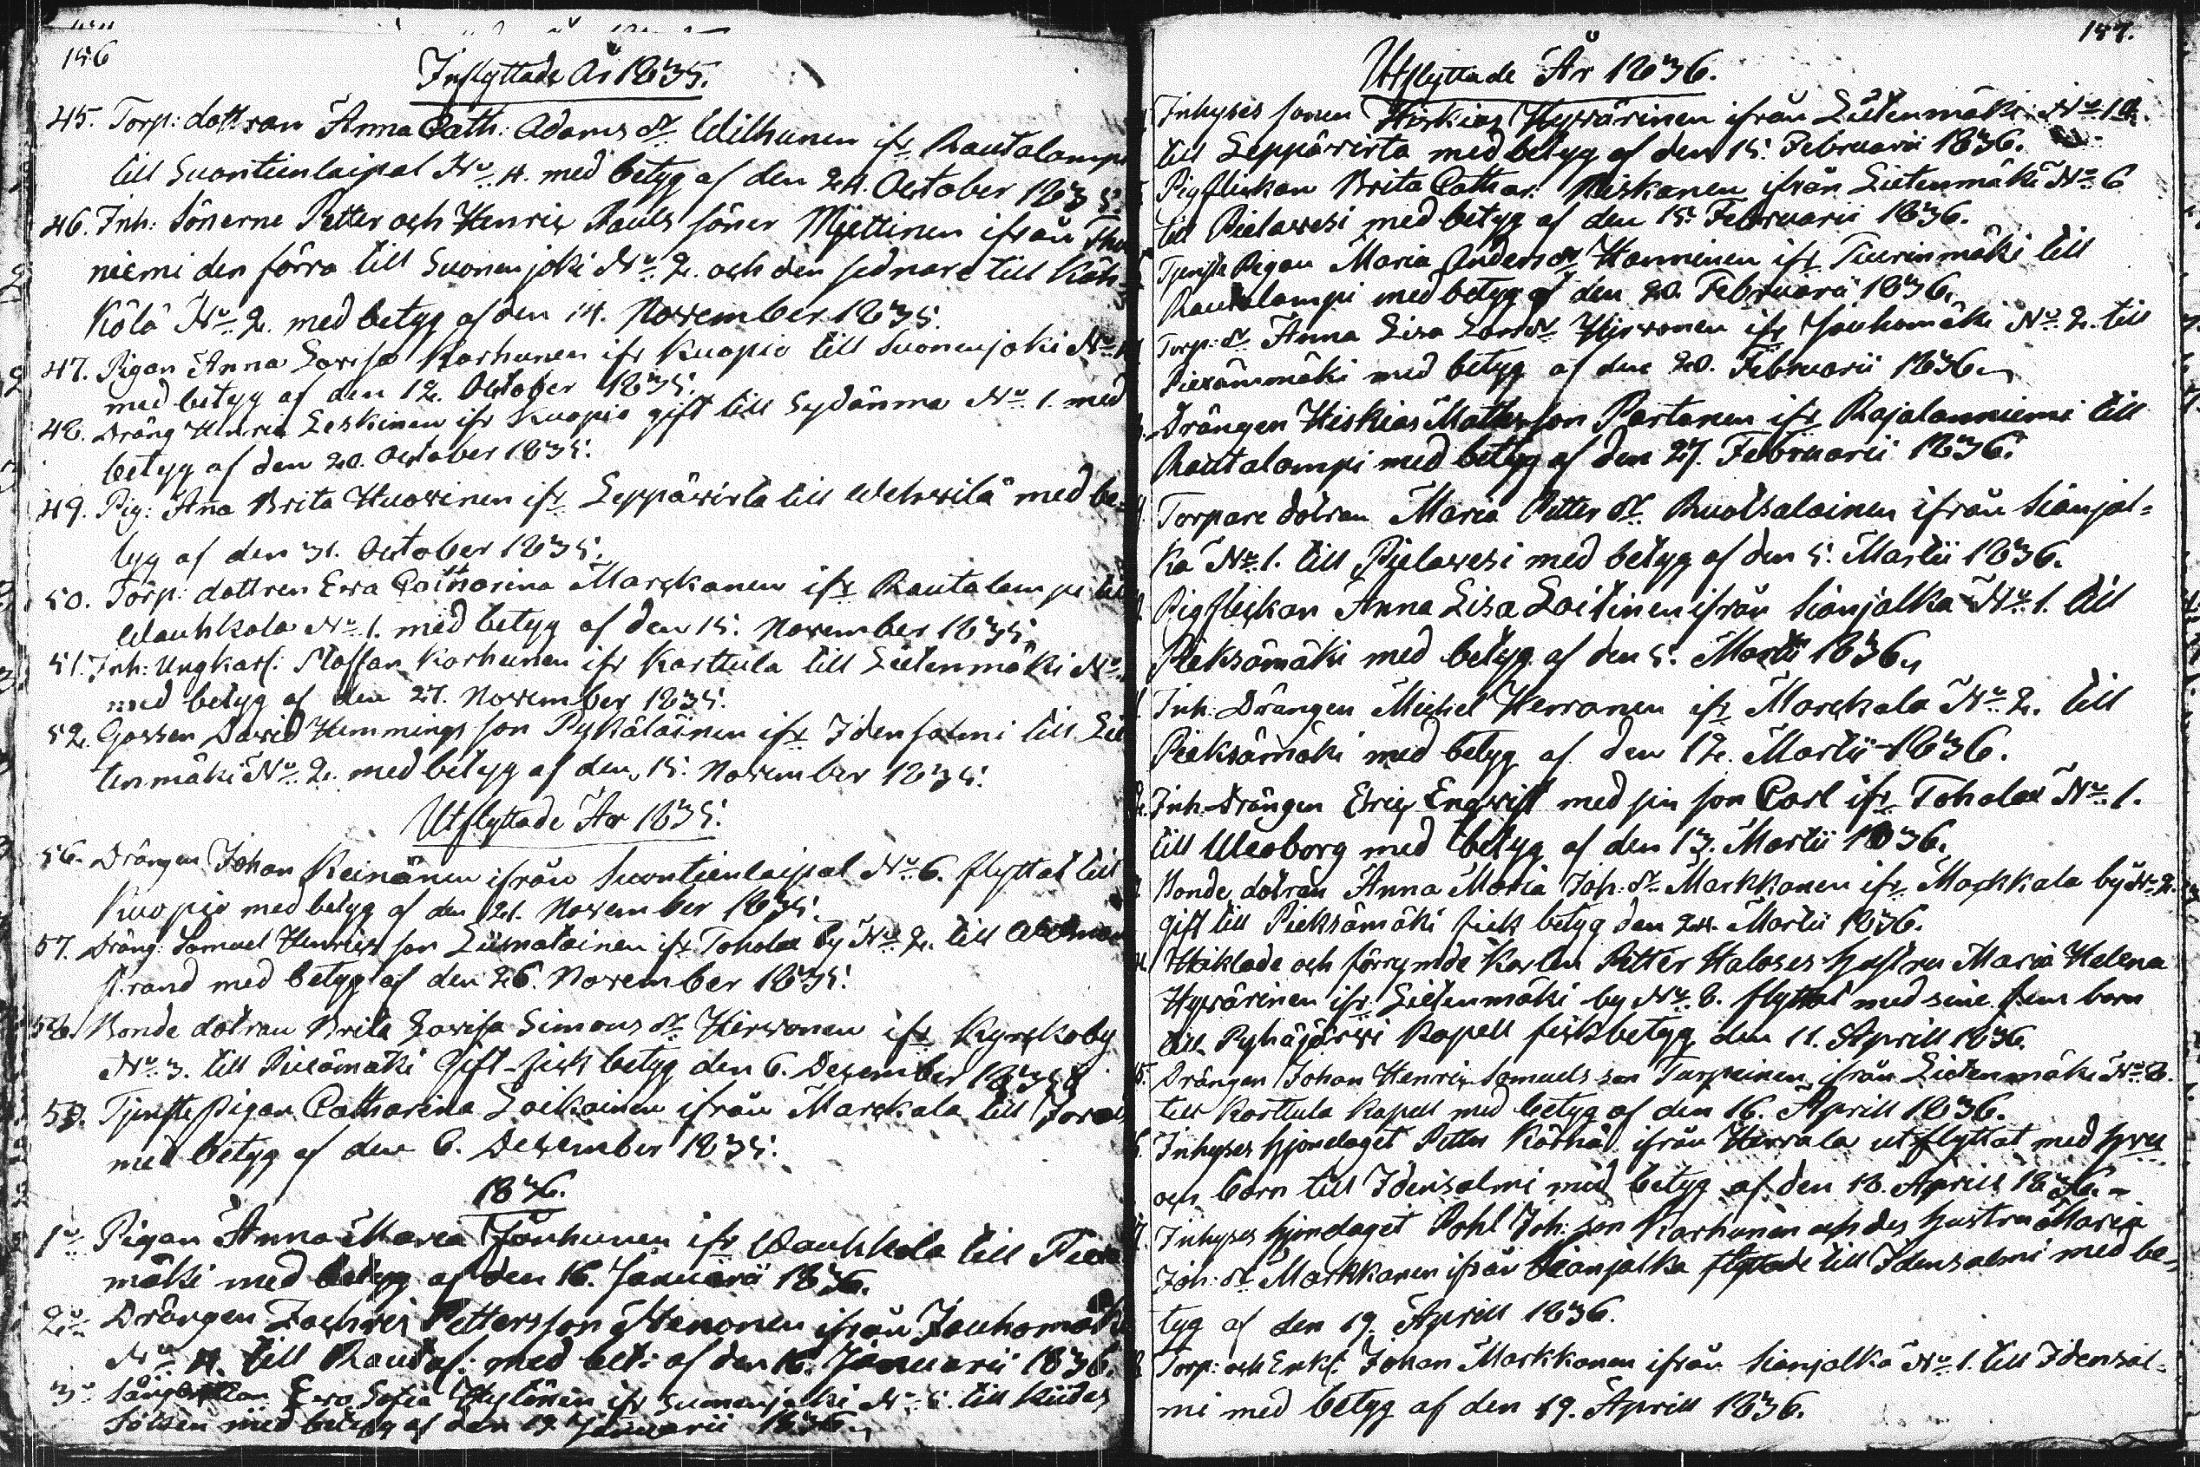 156
Inflyttade År 1835.
45. Torp: dottran Anna Cath: Adams dr Wilhunen ifr Rautalampi
till Suontienlaipal No 4. med betyg af den 24. October 1835
46. Inh: Sönerne Petter och Henric Pauls söner Mjettinen ifrån
niemi den förra till Suonenjoki No 2. och den sednare till Käh-
kölä No 2. med betyg af den 14. November 1835.
47. Pigan Anna Lovisa Karhunen ifr Kuopio till Suonenjoki No
med betyg af den 12. October 1835.
48. Dräng Henric Leskinen ifr Kuopio gift till Sydänma No 1. med
betyg af den 20. October 1835.
49. Pig: Ana Brita Huovinen ifr Leppävirta till Wehvilä med be-
tyg af den 31. October 1835.
50. Torp: dottren Eva Catharina Marckanen ifr Rautalampi till
Wauhkola No 1. med betyg af den 15. November 1835.
51. Inh: Ungkarl: Staffan Karhunen ifr Karttula till Lietenmäki No
med betyg af den 27. November 1835.
52. Gossen David Hemmings son Pykäläinen ifr Idensalmi till Lie
tenmäki No 2. med betyg af den 15. November 1835.
Utflyttade År 1835.
56. Drängen Johan Keinänen ifrån Suontienlaipal No 6. flyttat till
Kuopio med betyg af den 21. November 1835.
57. Dräng: Samuel Henrics son Liimatainen ifr Toholax by No 2. till
strand med betyg af den 26. November 1835.
58. Bonde dotran Brita Lovisa Simons dr Hirvonen ifr Kyrckoby
No 3. till Piexämäki Gift fick betyg den 6. December 1835
59. Tjenste Pigan Catharina Laikainen ifrån Marckala till Jorois
med betyg af den 6. December 1835.
1836.
1o Pigan Anna Maria Jäuhunen ifr Wauhkola till Piexä
mäki med betyg af den 16. Januarii 1836.
2o Drängen Zachris Pettersson Stenonen ifrån Jauhomäki
No 4. till Rautal: med bet: af den 16. Januarii 1836.
3o Eva Sofia Hytönen ifr Suonenjoki No till Kiides
med betyg af den 19. Januarii 1836.
157.
Utflyttade År 1836.
Inhyses sonen Hiskias Hyvärinen ifrån Lietenmäki No 10.
till Leppävirta med betyg af den 15. Februarii 1836.
Pigflickan Brita Cathar: Niskanen ifrån Lietenmäki No 6
till Pielavesi med betyg af den 15. Februarii 1836.
Tjenste Pigan Maria Anders dr Hänninen ifr Tuurinmäki till
Rautalampi med betyg af den 20. Februarii 1836.
Torp: dr Anna Lisa Lars dr Hirvonen ifr Jauhomäki No 2. till
Piexämmäki med betyg af den 20. Februarii 1836.
Drängen Hiskias Matts son Partanen ifr Rajalanniemi till
Rautalampi med betyg af den 27. Februarii 1836.
Torpare dotran Maria Petter dr Ruotsalainen ifrån Sianjal-
ka No 1. till Pielavesi med betyg af den 5. Martii 1836.
Pigflickan Anna Lisa Laitinen ifrån Sianjalka No 1. till
Pieksämäki med betyg af den 5. Martii 1836.
Inh: Drängen Michel Herranen ifr Marckala No 2. till
Pieksämäki med betyg af den 12. Martii 1836.
Inh: Drängen Eric Engqvist med sin son Carl ifr Toholax No 1.
till Uleåborg med betyg af den 13. Martii 1836.
Bonde dotran Anna Maria Joh: dr Markkanen ifr Markkala by No 2.
gift till Pieksämäki fick betyg den 24. Martii 1836.
Utoklade och förrymde Karlen Petter Haloses Hustru Maria Helena
Hyvärinen ifr Lietenmäki by No 8. flyttat med sine fem barn
till Pyhäjärvi Kapell fick betyg den 11. Aprill 1836.
15. Drängen Johan Henric Samuels son Turpeinen ifrån Lietenmäki No 2.
till Karttula Kapell med betyg af den 16. Aprill 1836.
Inhyses hjondaget Petter Körhä ifrån Herrala utflyttat med hru
och barn till Idensalmi med betyg af den 18. Aprill 1836.
Inhyses hjondaget Pohl Joh: son Karhunen och des hustru Maria
Joh: dr Markkanen ifrån Sianjalka flyttade till Idensalmi med be-
tyg af den 19. Aprill 1836.
Torp: och Enkl: Johan Markkanen ifrån Sianjalka No 1. till Idensal-
mi med betyg af den 19. Aprill 1836.